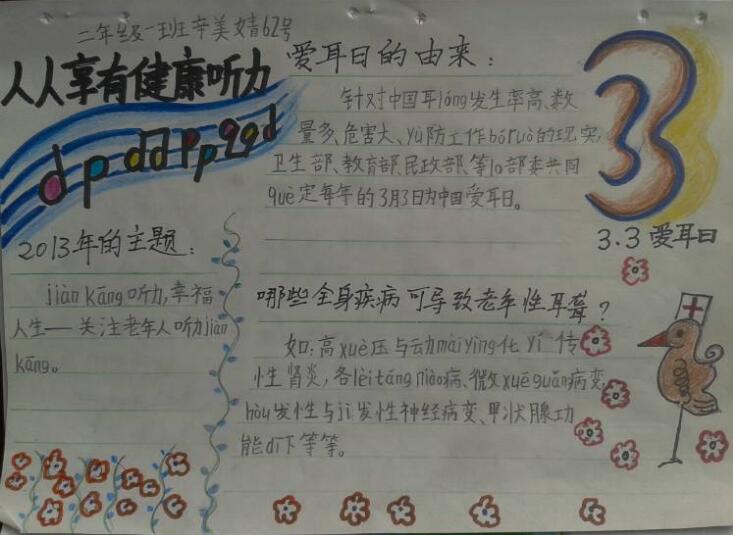 二年级一班辛美婧62号
人人享有健康听力
爱耳日的由来：
针对中国耳lóng发生率高、数
量多、危害大、yù防工作bóruò的现实,
卫生部、教育部、民政部、等10部委共同
què定每年的3月3日为中国爱耳日。
3.3爱耳日
2013年的主题：
jiàn kāng听力,幸福
人生——关注老年人听力jiàn
kāng。
哪些全身疾病可导致老年性耳聋？
如:高xuè压与动màiyìng化 yí传
性肾炎,各lèitángniào病、微xuèguǎn病变
hòu发性与jì发性神经病变、甲状腺功
能dī下等等。